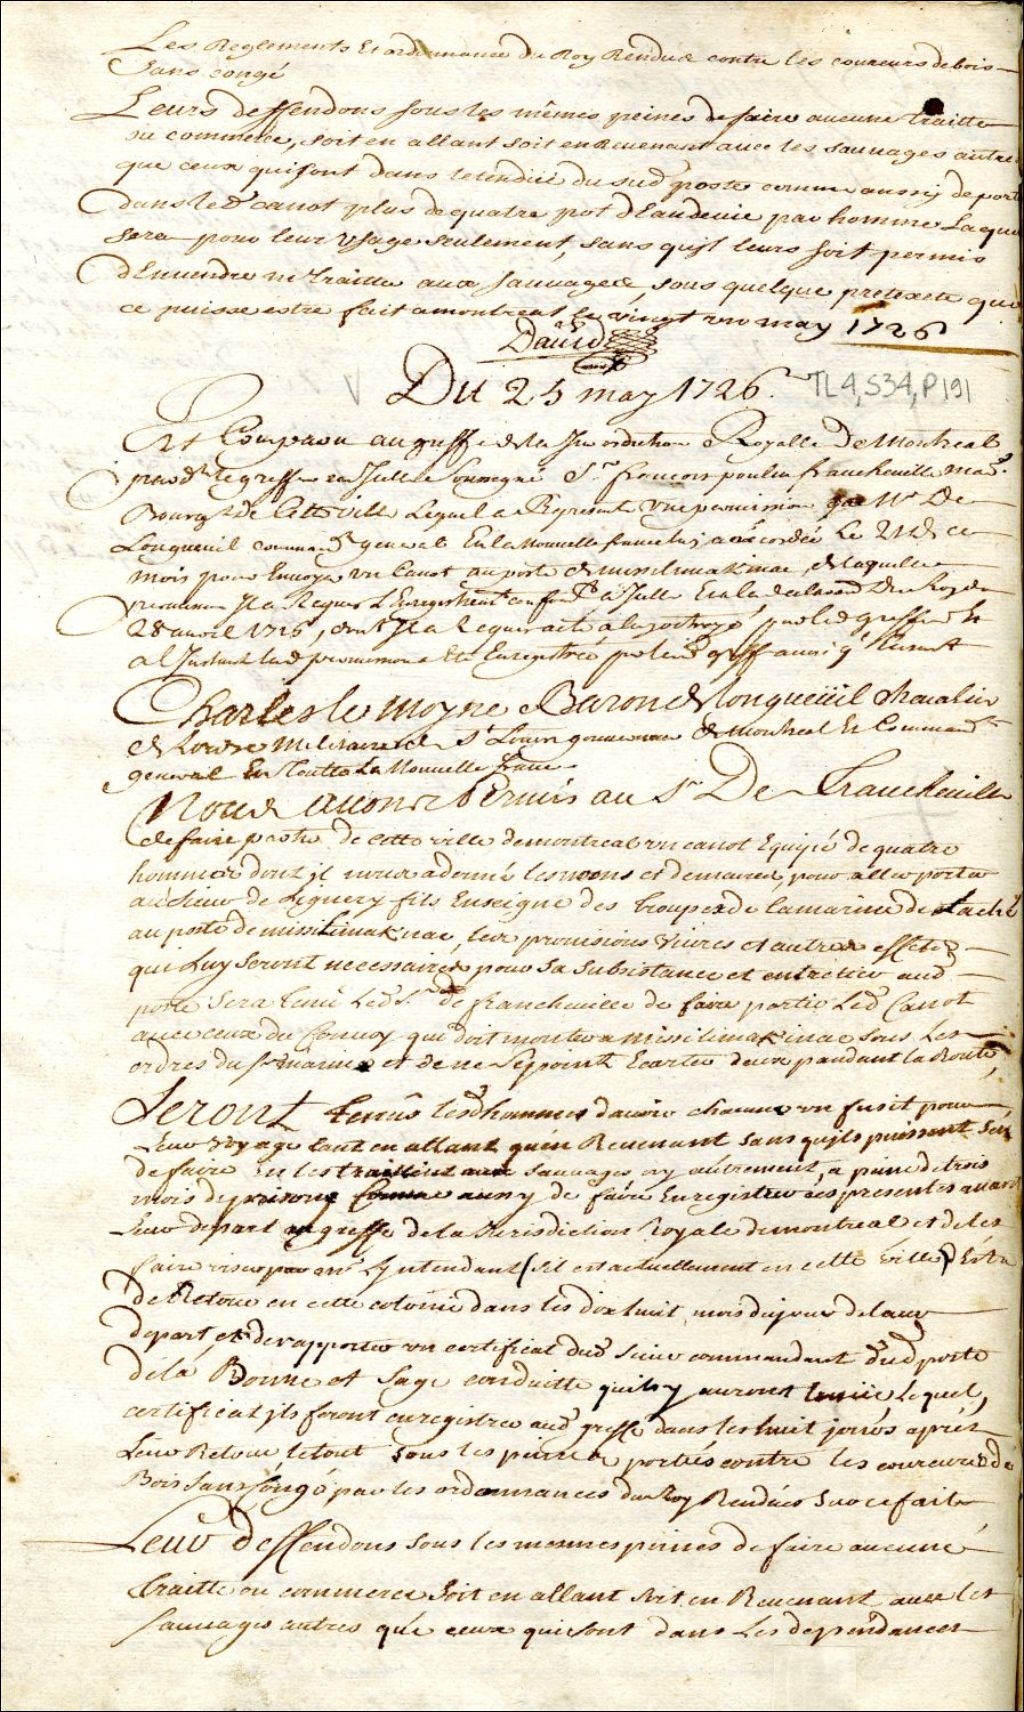 Les Reglements Et ordonnance du Roy Rendue contre les coureurs de bois
Sans congé
Leurs deffendons sous les mêmes peines de faire aucune traitte
ou commerce, soit en allant soit en Revenant avec les sauvages autres
que ceux qui sont dans letendüe dud poste comme aussy de porter
dans led canot plus de quatre pot d'Eaudevie par homme Laque
sera pour leur Usage seulement, sans qu'jl leurs soit permis
d'Envendre ni traitter aux sauvages, sous quelque pretexte que
ce puisse estre fait a montreal le vingt un may 1726
David
Du 25 may 1726. TL4,S34,P191
Est Comparu au greffe de la Jurisdiction Royalle de Montreal
pardt le greffier en Icelle Soussigné Sr. francois poulin francheville mard.
Bourgs de Cette Ville Lequel a Representé Une permission que Mr De
Longueuil commandt general En la Nouvelle france luj a accordée Le 21 de ce
mois pour Envoyer un Canot au poste de missilimakinac, de laquelle
permission Il a Requis L'Enregistremt conformt a Icelle Et a la declaraon du Roy du
28 avril 1716, dont Il a Requis acte a luy octroyé par led greffier Et
a l'Instant lad permission a Eté Enregistrée par led greff ainsi q' Ensuit
Charles le Moyne Baron de longueüil chevalier
de Lordre Militaire de St Louis gouverneur de Montreal Et Commandt
general En Toutte La Nouvelle france
Nous avons Permis au Sr De Francheville
de faire partir de cette ville de montreal un canot Equipé de quatre
hommes dont jl nous a donné les noms et demeures, pour aller porter
au sieur de Lignery fils Enseigne des troupes de la marine detaché
au poste de missilimakinac, les provisions vivres et autres effets
qui Luy seront necessaires pour sa subsistance et entretien aud
poste Sera tenu Led Sr de francheville de faire partir Led Canot
avec ceux du Convoy qui doit monter a missilimakinac sous Les
ordres du Sr marin et de ne se point Ecarter deux pandant la Route,
Seront tenûs lesd hommes d'avoir chacun un fusil pour
Leur Voyage tant en allant qu'en Revenant sans qu'jls puissent sen
defaire En les traittant aux sauvages ny autrement, a peine de trois
mois de prisons comme aussy de faire Enregistrer ces presentes avant
Leur depart au greffe de la Jurisdiction Royale de montreal et de les
faire viser par mr Lyntendant (s'il est actuellement en cette ville)
de Retour en cette colonie dans les dix huit mois du jour de leur
depart, et de rapporter un certificat dud Sieur commandant dud poste
de la Bonne et Sage conduitte qu'ils y auront tenüe, Lequel,
certificat jls feront enregistrer aud greffe dans les huit jours aprés
Leur Retour, le tout sous les peines portées contre les coureurs de
Bois sans Congé par les ordonnances du Roy Rendües sur ce fait
Leur Deffendons sous les mesmes peines de faire aucune
traitte ou commerce Soit en allant soit en Revenant avec les
sauvages autres que ceux qui sont dans Les dependances